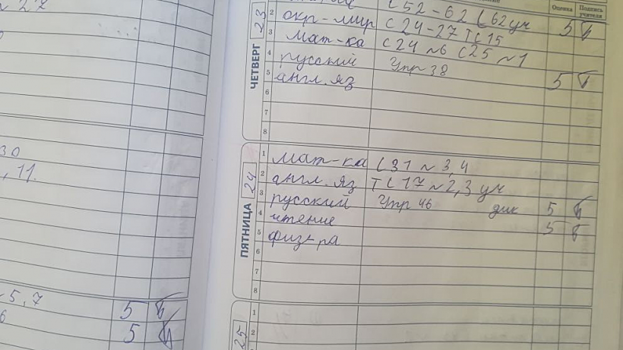 Оценка Подпись учителя
ЧЕТВЕРГ 23
с 52-62 с 62 уч
2 окр-мир с 24-27 Т с 15 5
3 мат-ка с 24 №6 с 25 №1
4 русский Упр 38
5 англ. яз 5
6
7
8
ПЯТНИЦА 24
1 мат-ка с 31 № 3,4
2 англ. яз Т с 17 № 2,3 уч
3 русский Упр 46 дик 5
4 чтение 5
5 физ-ра
6
7
8
25
1
2
, 11
5, 7 5
5